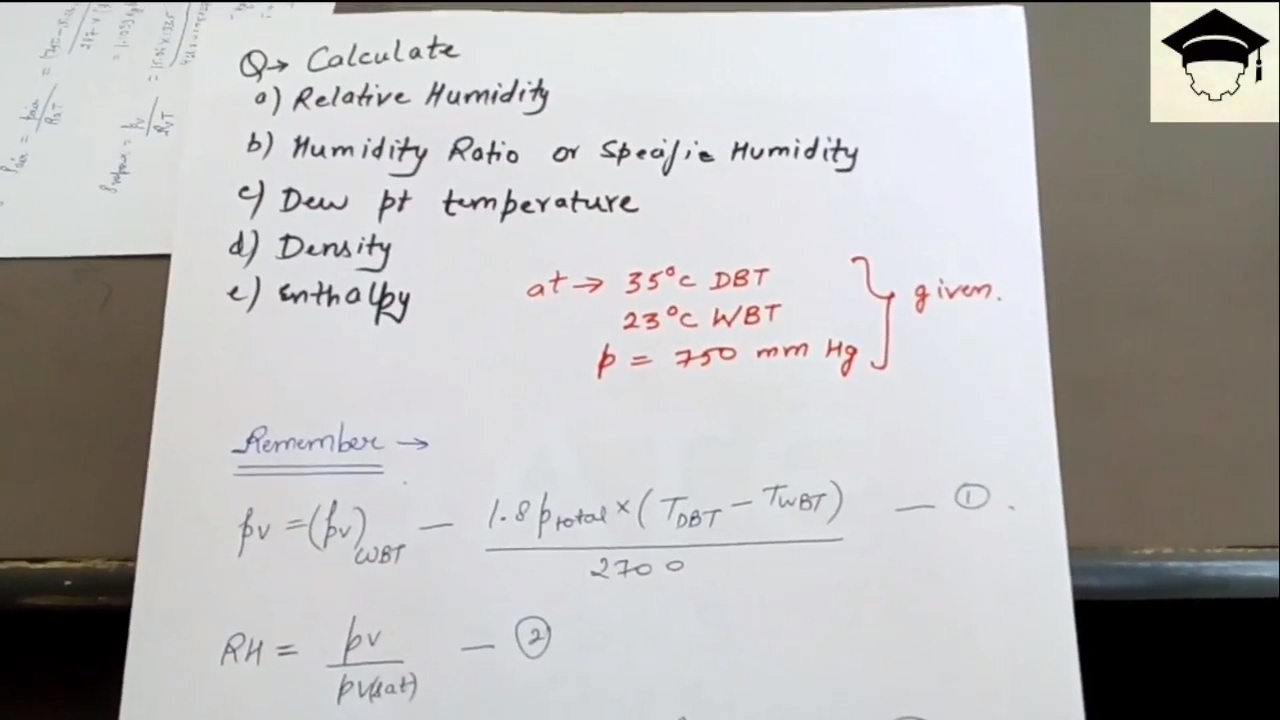 Q→ Calculate
a) Relative Humidity
b) Humidity Ratio or Specific Humidity
c) Dew pt temperature
d) Density
e) Enthalpy
at → 35°C DBT
23°C WBT
p = 750 mm Hg
given.
Remember →
pv = (pv)WBT − 1.8 ptotal × (TDBT − TWBT) / 2700 — ①.
RH = pv / pv(sat) — ②